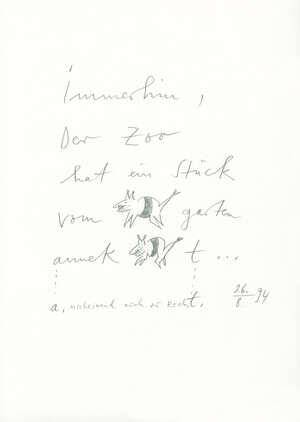 Immerhin,
Der Zoo
hat ein Stück
vom garten
annek t...
a, nscheinend auch zu Recht.
26.
8 94